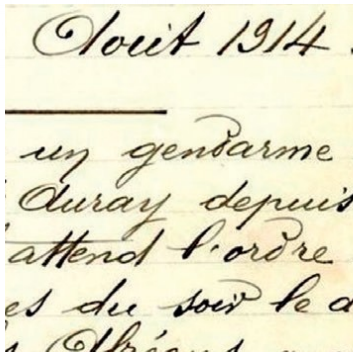 Août 1914
un gendarme
Auray depuis
attend l'ordre
es du soir le d